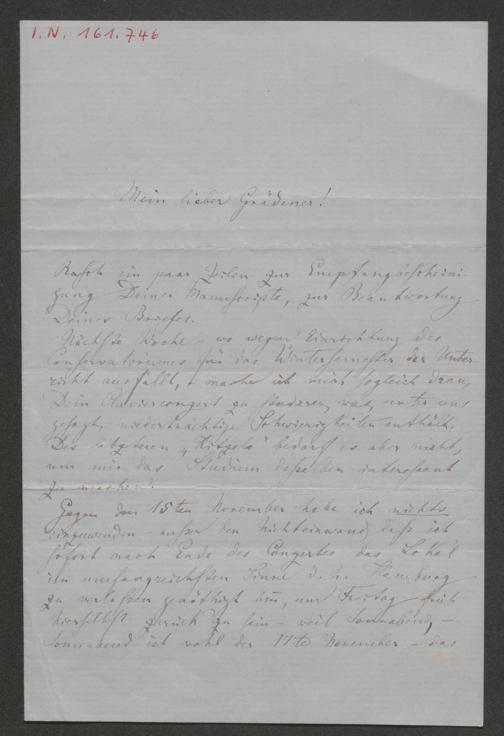 I.N. 161.746
Mein lieber Grädener!
Rasch ein paar Zeilen zur Empfangsbescheini-
gung Deines Manuscripts, zur Beantwortung
Deines Briefes.
Nächste Woche – wo wegen Einrichtung des
Conservatoriums für das Wintersemester der Unter-
richt ausfällt, mache ich mich sogleich daran,
Dein Clavierconzert zu studieren, was, unter uns
gesagt, niederträchtige Schwierigkeiten enthält.
Des letzteren „Kitzels" bedarf es aber nicht,
um mir das Studium desselben interessant
zu machen.
Gegen den 15ten November habe ich nichts
einzuwenden – außer den Nichteinwand, daß ich
sofort nach Ende des Conzertes das Lokal
im umfangreichsten Sinne d. h. Hamburg
zu verlassen genöthigt bin, um Freitag früh
hierselbst zurück zu sein – weil Sonnabend, –
Sonnabend ist wohl der 17te November – das